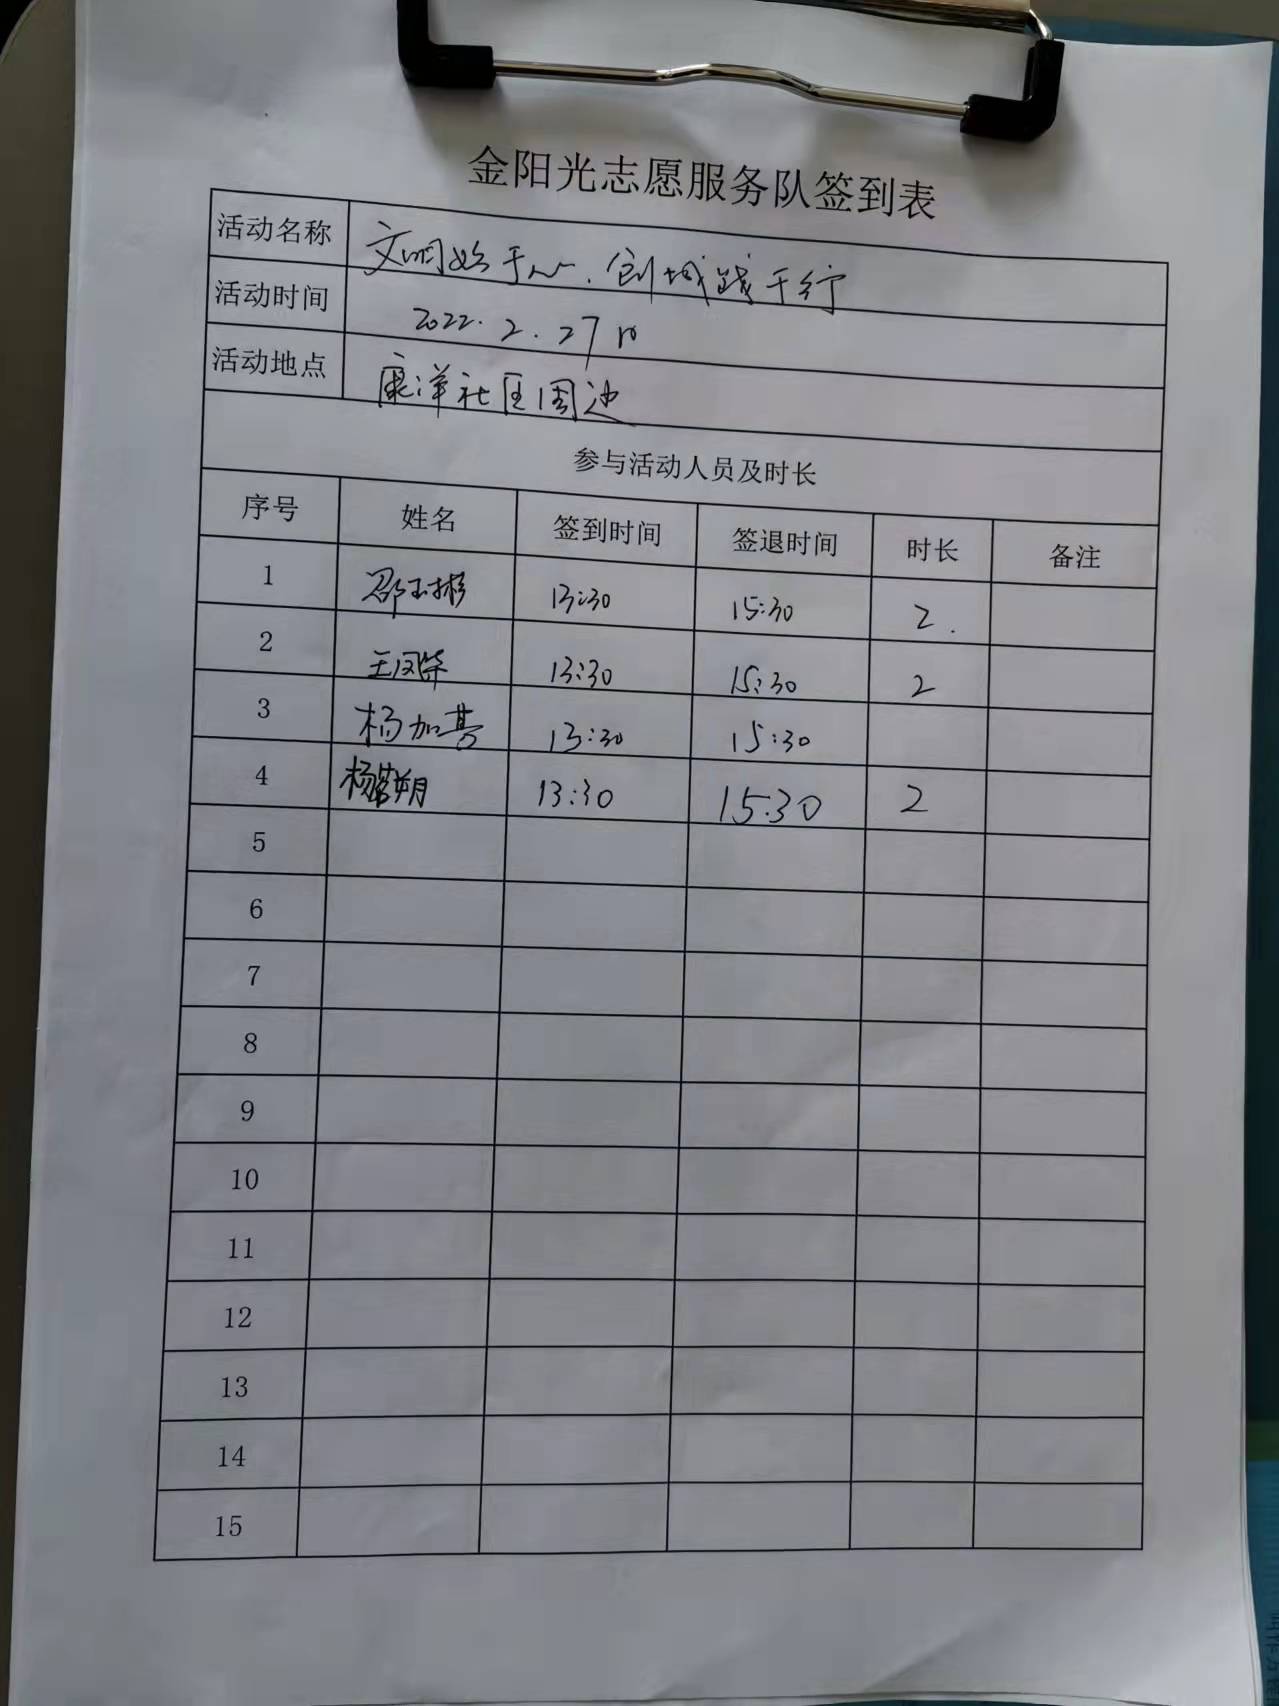 金阳光志愿服务队签到表
活动名称 文明始于心、创城践于行
活动时间 2022.2.27日
活动地点 康洋社区周边
参与活动人员及时长
序号 姓名 签到时间 签退时间 时长 备注
1 邵玉彬 13:30 15:30 2.
2 王凤华 13:30 15:30 2
3 杨加 13:30 15:30
4 杨 朔 13:30 15:30 2
5
6
7
8
9
10
11
12
13
14
15